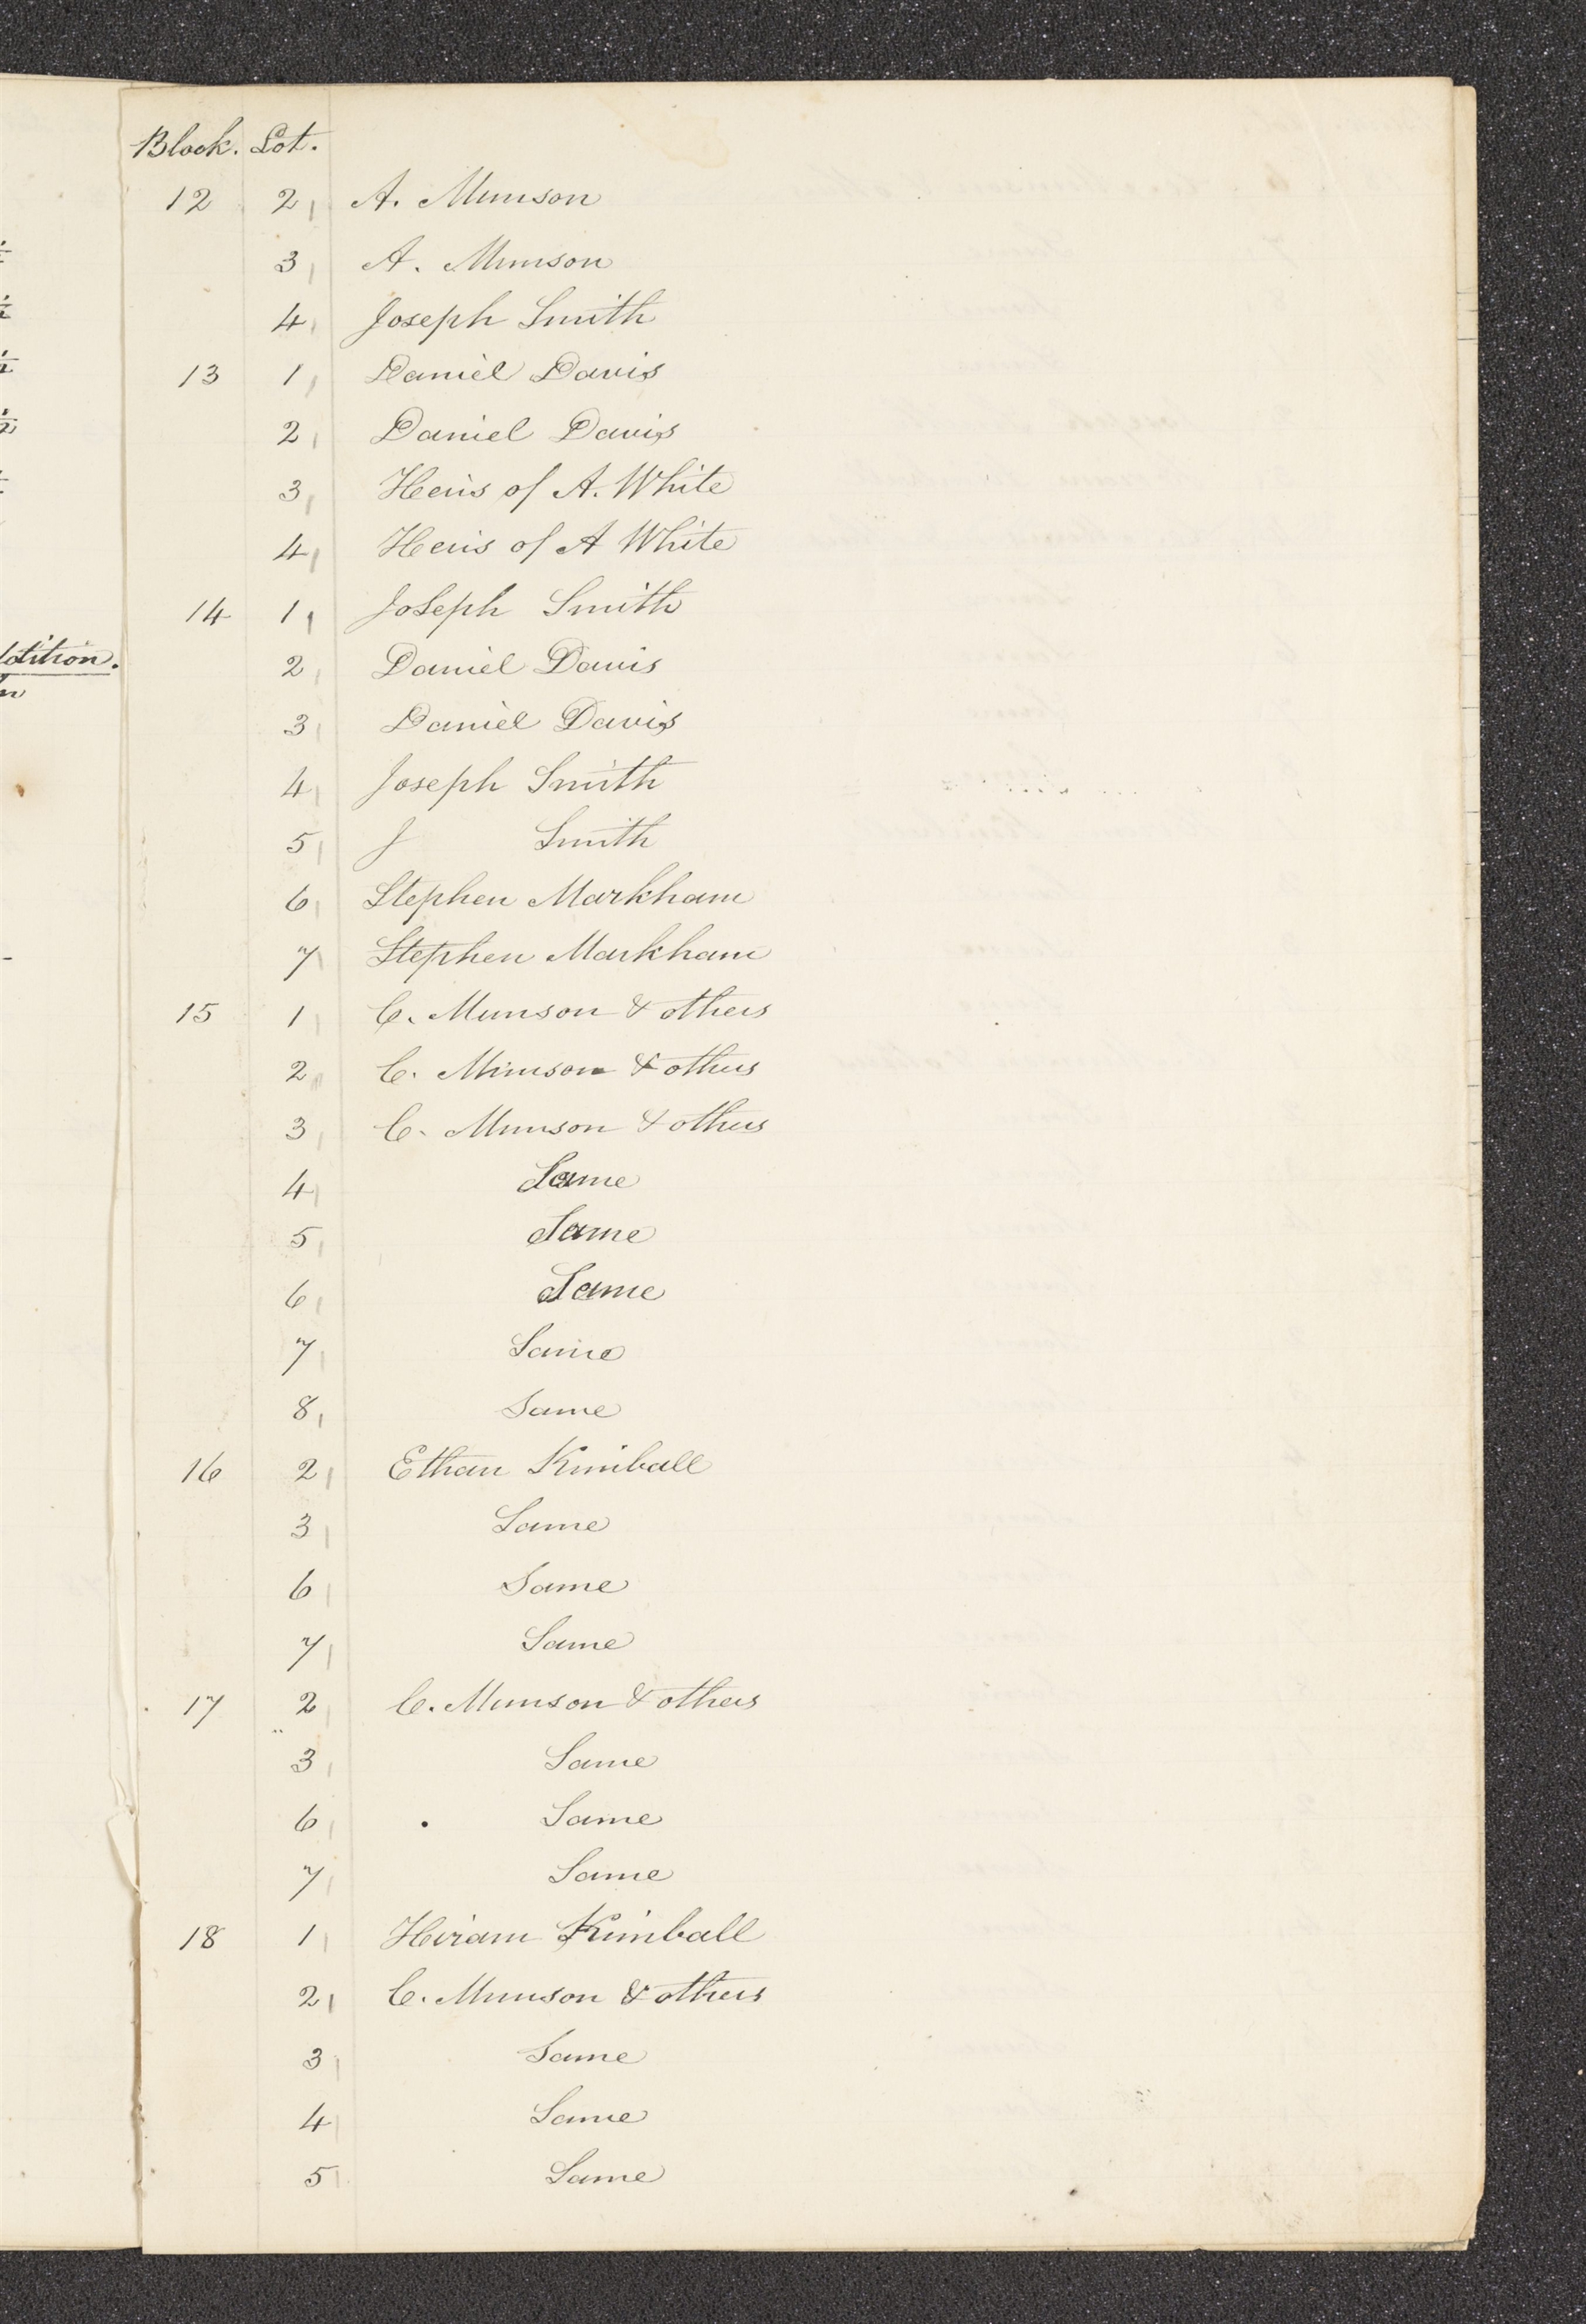 Block. Lot.
12 2 A. Munson
3 A. Munson
4 Joseph Smith
13 1 Daniel Davis
2 Daniel Davis
3 Heirs of A. White
4 Heirs of A White
14 1 Joseph Smith
2 Daniel Davis
3 Daniel Davis
4 Joseph Smith
5 J Smith
6 Stephen Markham
7 Stephen Markham
15 1 C. Munson & others
2 C. Munson & others
3 C. Munson & others
4 Same
5 Same
6 Same
7 Same
8 Same
16 2 Ethan Kimball
3 Same
6 Same
7 Same
17 2 C. Munson & others
3 Same
6 Same
7 Same
18 1 Hiram Kimball
2 C. Munson & others
3 Same
4 Same
5 Same